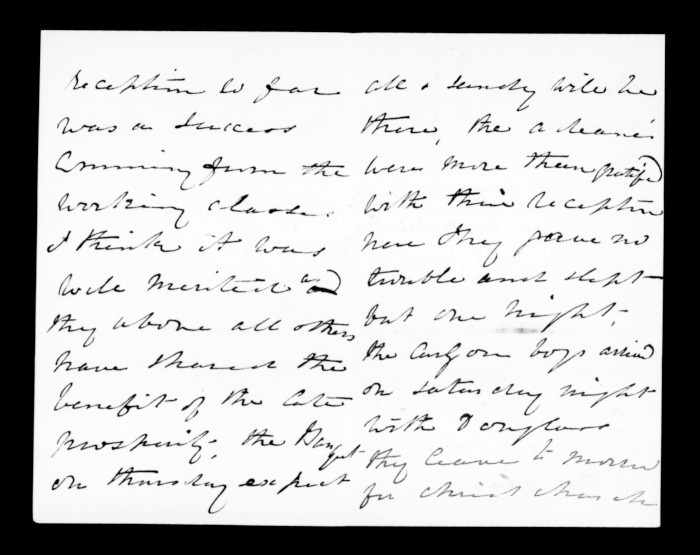 reception so far
was a success
Comming from the
working classes
I think it was
well merited and
they above all others
have shared the
benefit of the late
prosperity, the Banquet
on thursday expect
all & sundry will be
there, the
were more than gratified
with their reception
here they gave no
trouble and slept
but one night,
the boys arrived
on saturday night
with Douglass
they leave to morrow
for christchurch